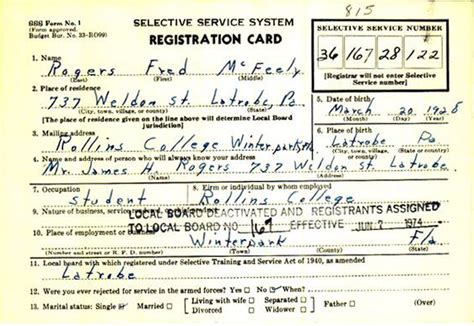 815
SSS Form No. 1
(Form approved.
Budget Bur. No. 33-R099)
SELECTIVE SERVICE SYSTEM
REGISTRATION CARD
SELECTIVE SERVICE NUMBER
36 167 28 122
[Registrar will not enter Selective
Service number]
1. Name
Rogers Fred McFeely
(Last) (First) (Middle)
2. Place of residence
737 Weldon St. Latrobe, Pa
(City, town, village, or county)
[The place of residence given on the line above will determine Local Board
jurisdiction]
5. Date of birth
March 20 1928
(Month) (Day) (Year)
3. Mailing address
Rollins College Winterpark, Fla
6. Place of birth
Latrobe Pa
4. Name and address of person who will always know your address
Mr. James H. Rogers 737 Weldon St. Latrobe
7. Occupation
Student
8. Firm or individual by whom employed
Rollins College
9. Nature of business, service
LOCAL BOARD DEACTIVATED AND REGISTRANTS ASSIGNED
TO LOCAL BOARD NO. 167 EFFECTIVE JUN 7 1974
10. Place of employment or
Winterpark Fla
(Number and street or R. F. D. number) (City, town, village, or county) (State)
11. Local board with which registered under Selective Training and Service Act of 1940, as amended
Latrobe
12. Were you ever rejected for service in the armed forces? Yes ☐ No ☑ When?
13. Marital status: Single ☑ Married ☐ Living with wife ☐ Separated ☐ Father ☐ (Over)
Divorced ☐ Widower ☐